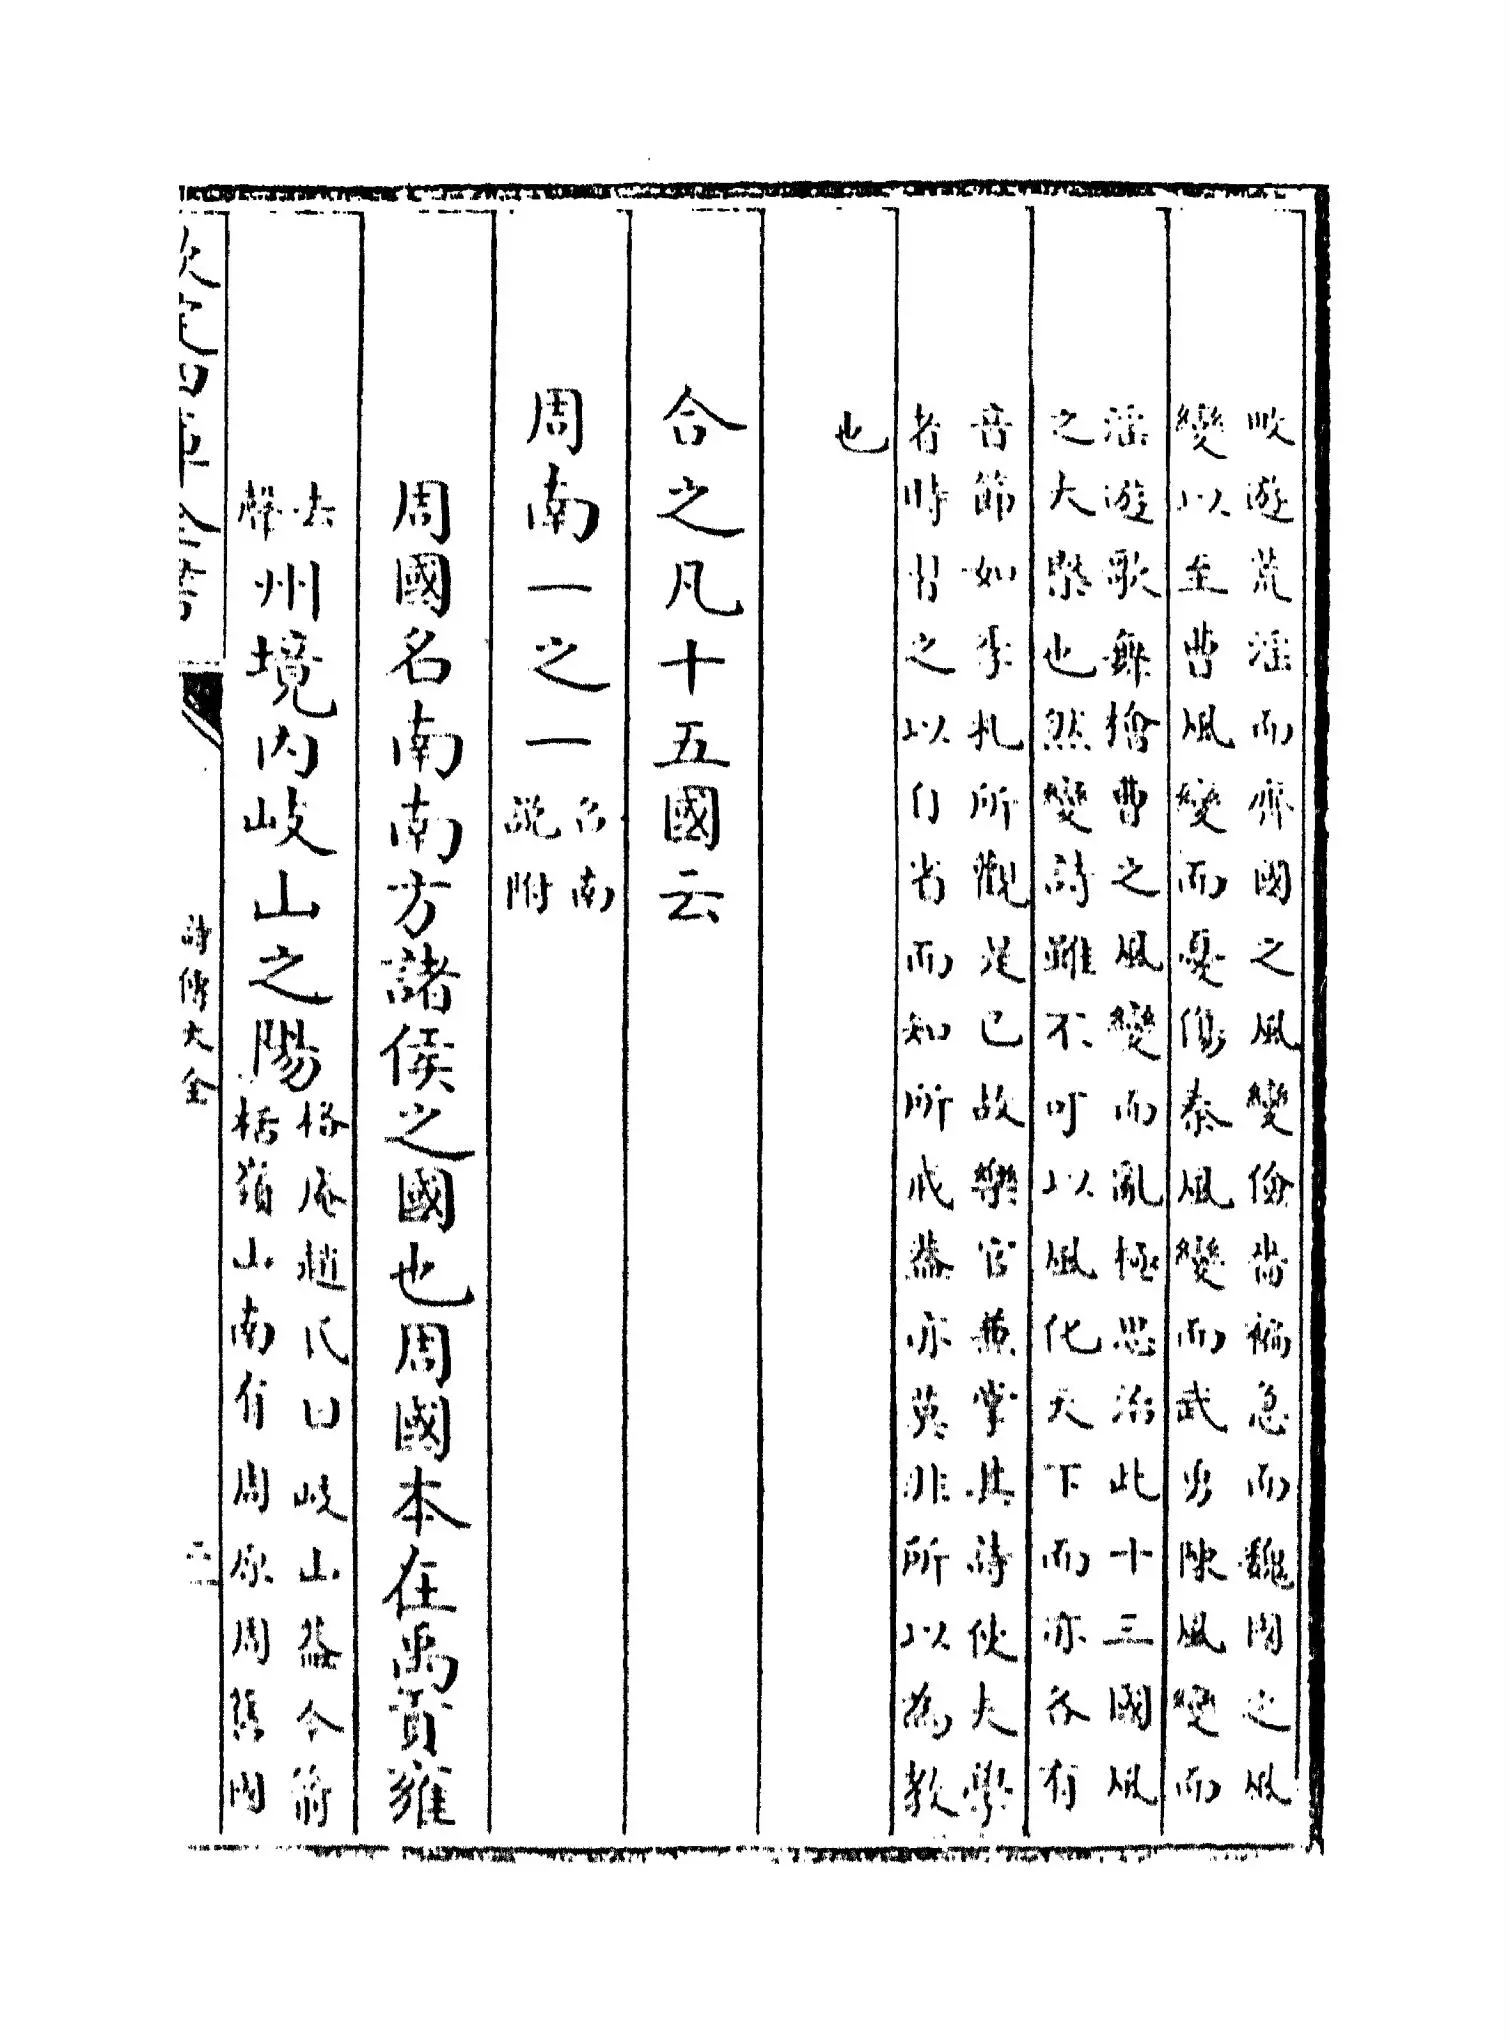 畋遊荒淫而齊國之風變儉嗇褊急而魏國之風
變以至曹風變而憂傷秦風變而武勇陳風變而
淫遊歌舞檜曹之風變而亂極思治此十三國風
之大槩也然變詩雖不可以風化天下而亦各有
音節如季札所觀是已故樂官兼掌其詩使大學
者時習之以自省而知所戒葢亦莫非所以為教
也
合之凡十五國云
周南一之一
召南
說附
周國名南南方諸侯之國也周國本在禹貢雍
去
聲
州境內岐山之陽
格庵趙氏曰岐山葢今箭
栝嶺山南有周原周舊國
欽定四庫全書
詩傳大全
二